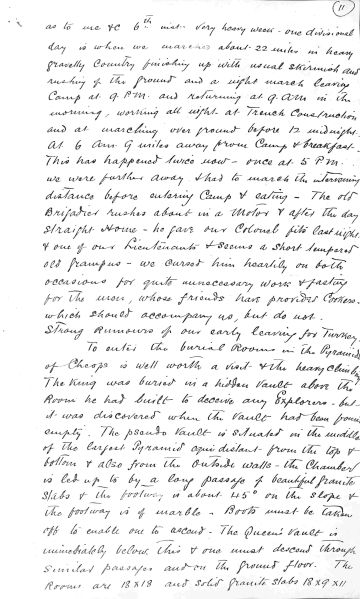 11
as to use &c 6th inst. Very heavy week - one divisional
day is when we marched about 22 miles in heavy
gravelly Country finishing up with usual skirmish and
rushing of the ground and a night march leaving
Camp at 9 P.M. and returning at 9. A.M in the
morning, working all night at Trench Construction
and at marching over ground before 12 midnight.
At 6 Am 9 miles away from Camp & breakfast.
This has happened twice now - once at 5 P.M.
we were further away & had to march the intervening
distance before entering Camp & eating - The old
Brigadier rushes about in a Motor & after the day
straight Home - he gave our Colonel fits last night.
& one of our Lieutenants & seems a short tempered
old grampus - we cursed him heartily on both
occasions for quite unnecessary work & fasting
for the men, whose friends have provided Cookers -
which should accompany us, but do not.
Strong Rumours of our early leaving for Turkey.
To enter the burial Rooms in the Pyramids
of Cheops is well worth a visit & the heavy climbing
The King was buried in a hidden vault above the
Room he had built to deceive any Explorers - but
it was discovered when the vault had been found
empty. The pseudo vault is situated in the middle
of the largest Pyramid equi distant from the top &
bottom & also from the outside walls - the Chamber
is led up to by a long passage of beautiful granite
slabs & the footway is about 45° on the slope &
the footway is of marble - Boots must be taken
off to enable one to ascend - The Queen's Vault is
immediately below this & one must descend through
similar passages and on the ground floor. The
Rooms are 18x18 and solid granite slabs 18x9x11